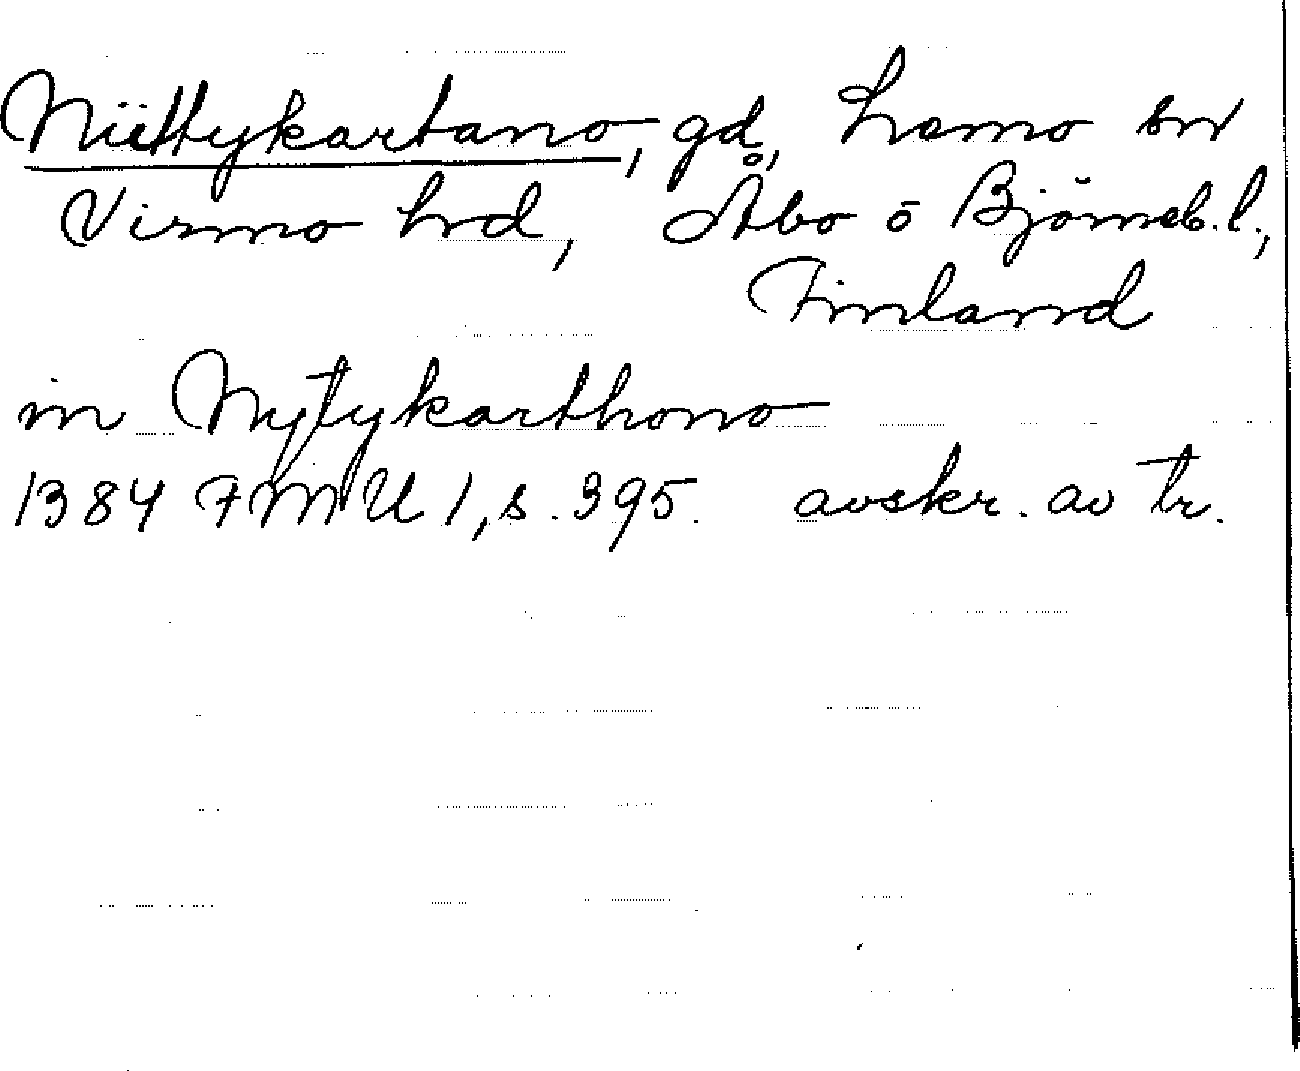 Niittykartano, gd, Lemo sn
Virmo hd, Åbo o Björneb. l.,
Finland
in Nytykarthono
1384 FMU 1, s. 395. avskr. av tr.